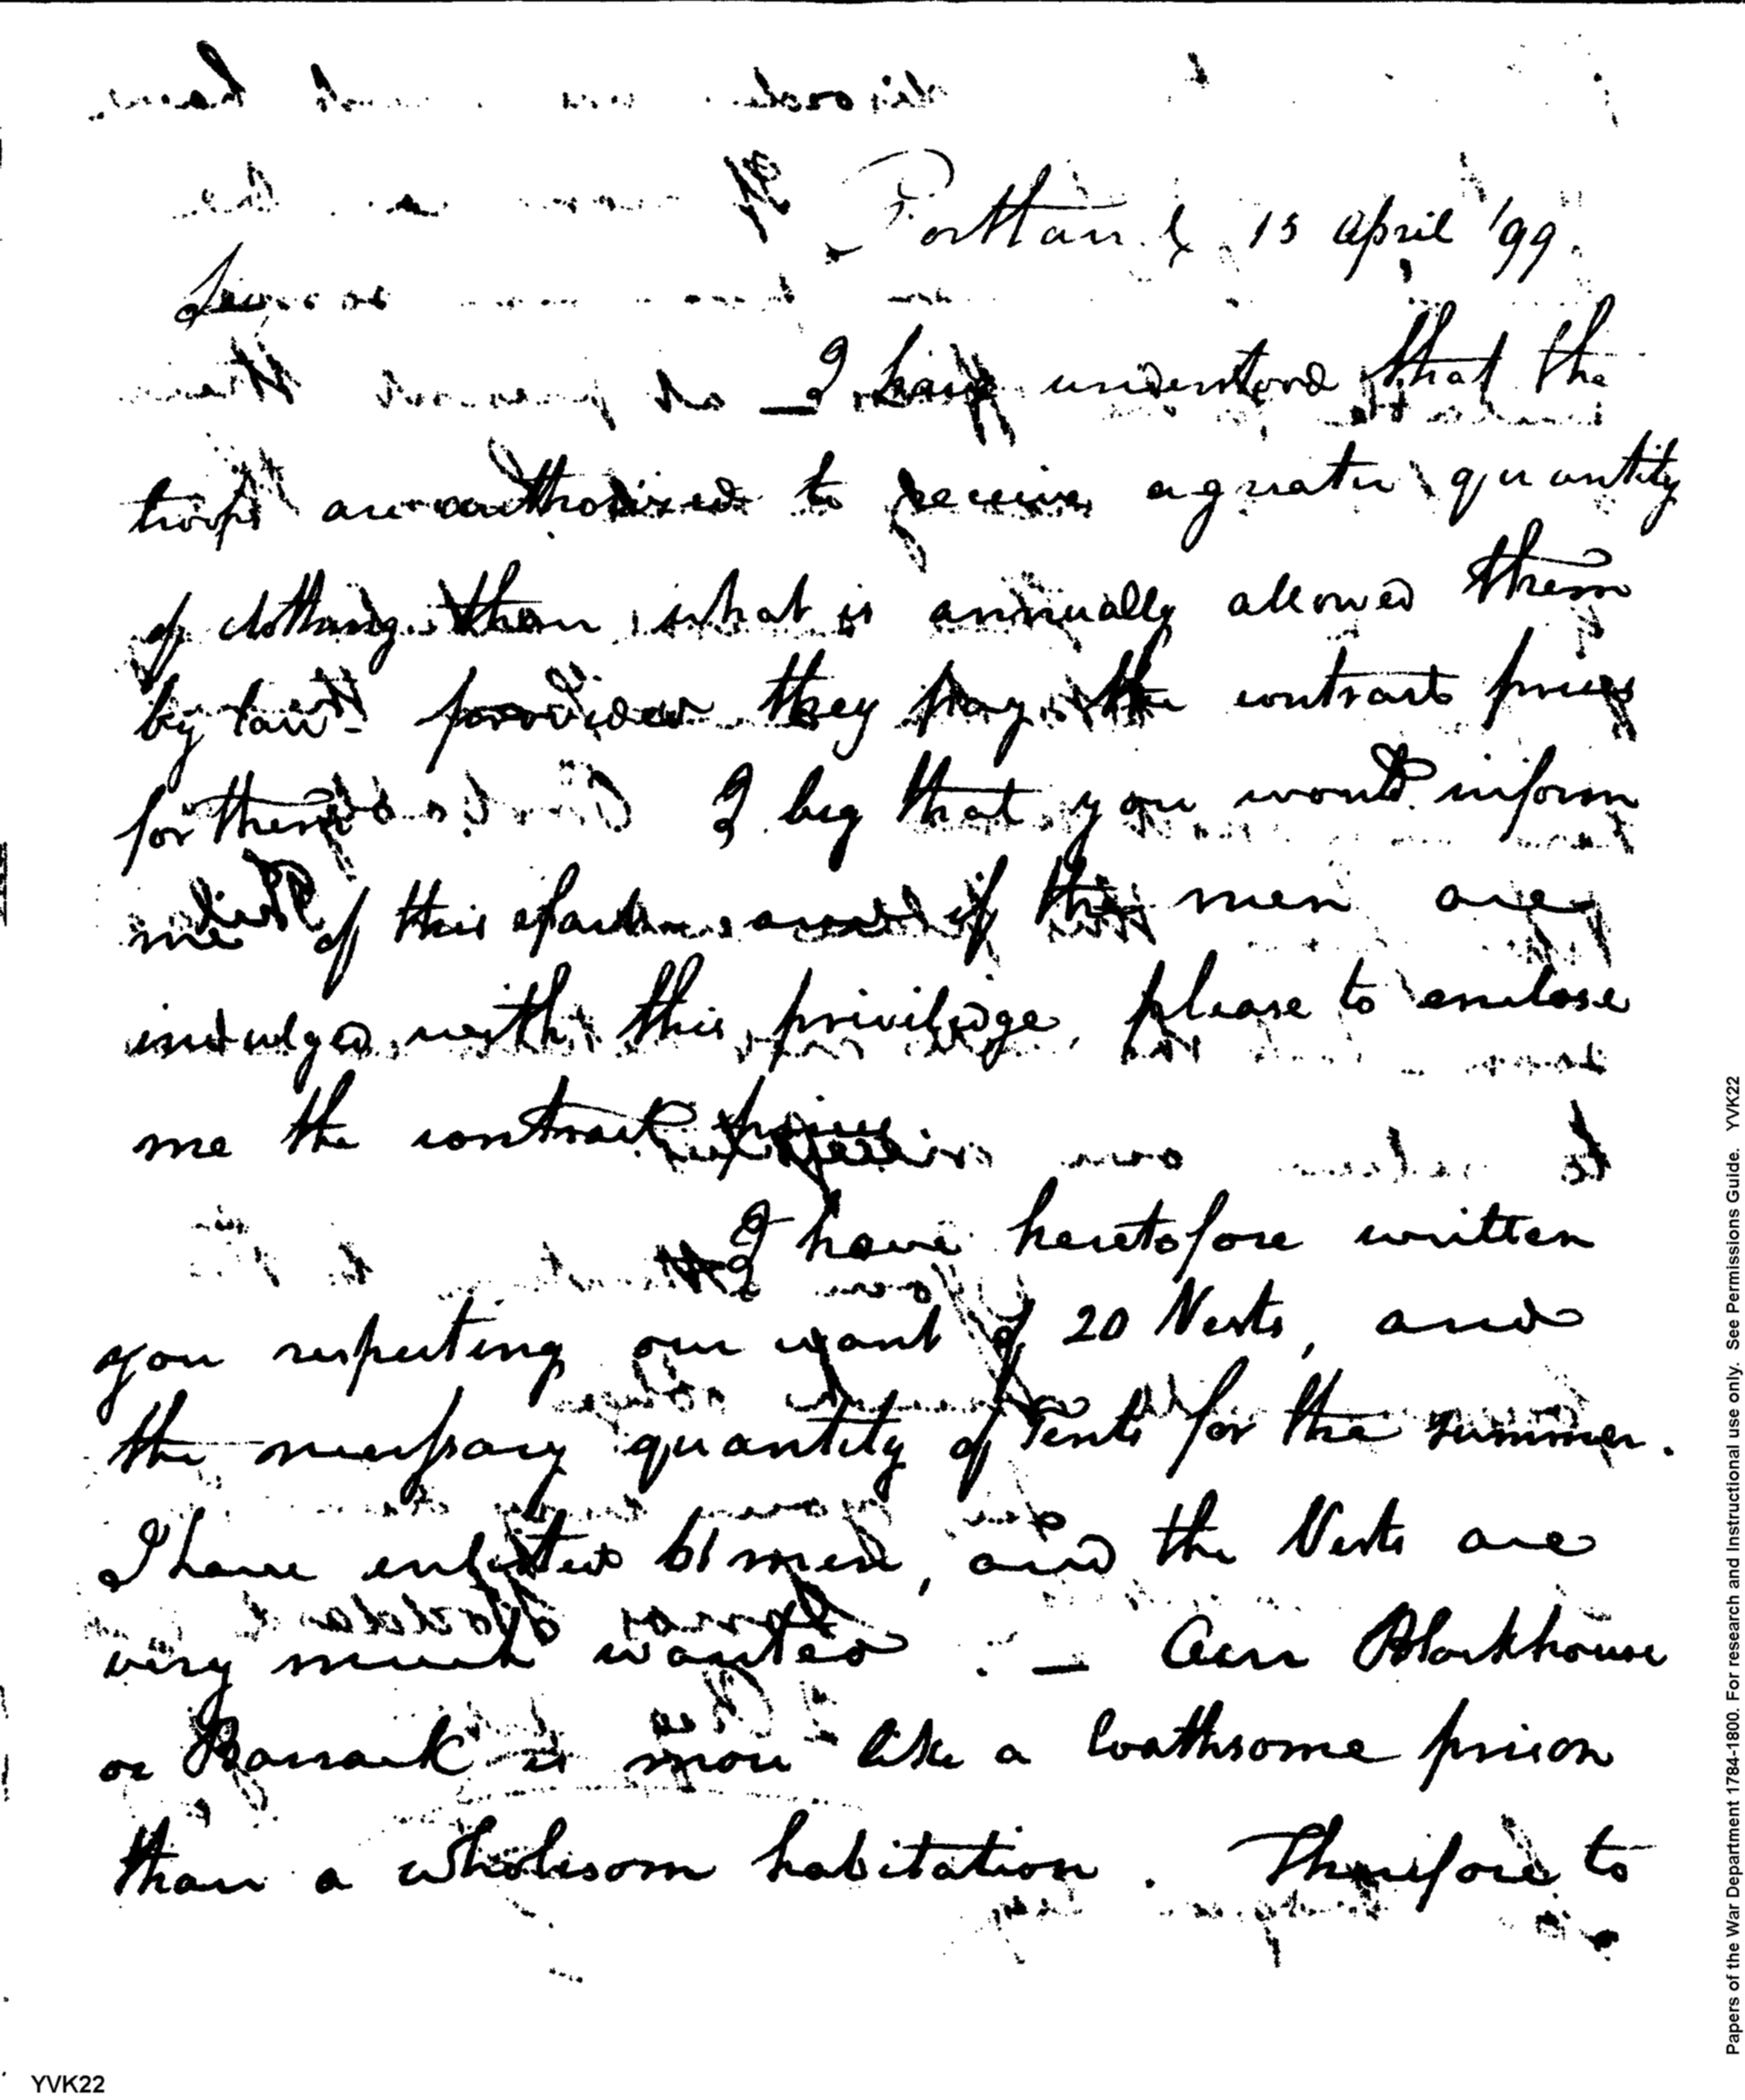 Portland 15 April '99.
I have understood that the
troops are authorized to receive a greater quantity
of clothing than what is annually allowed them
by law provided they pay the contract prices
for them I beg that you would inform
me of this and if the men are
indulged with this priviledge, please to enclose
me the contract prices
I have heretofore written
you respecting our want of 20 Vests, and
the necessary quantity of Tents for the summer.
I have enlisted 61 men, and the Vests are
very much wanted. — Our Blockhouse
or Barrack is more like a loathsome prison
than a wholesom habitation. Therefore to
Papers of the War Department 1784-1800. For research and Instructional use only. See Permissions Guide. YVK22
YVK22